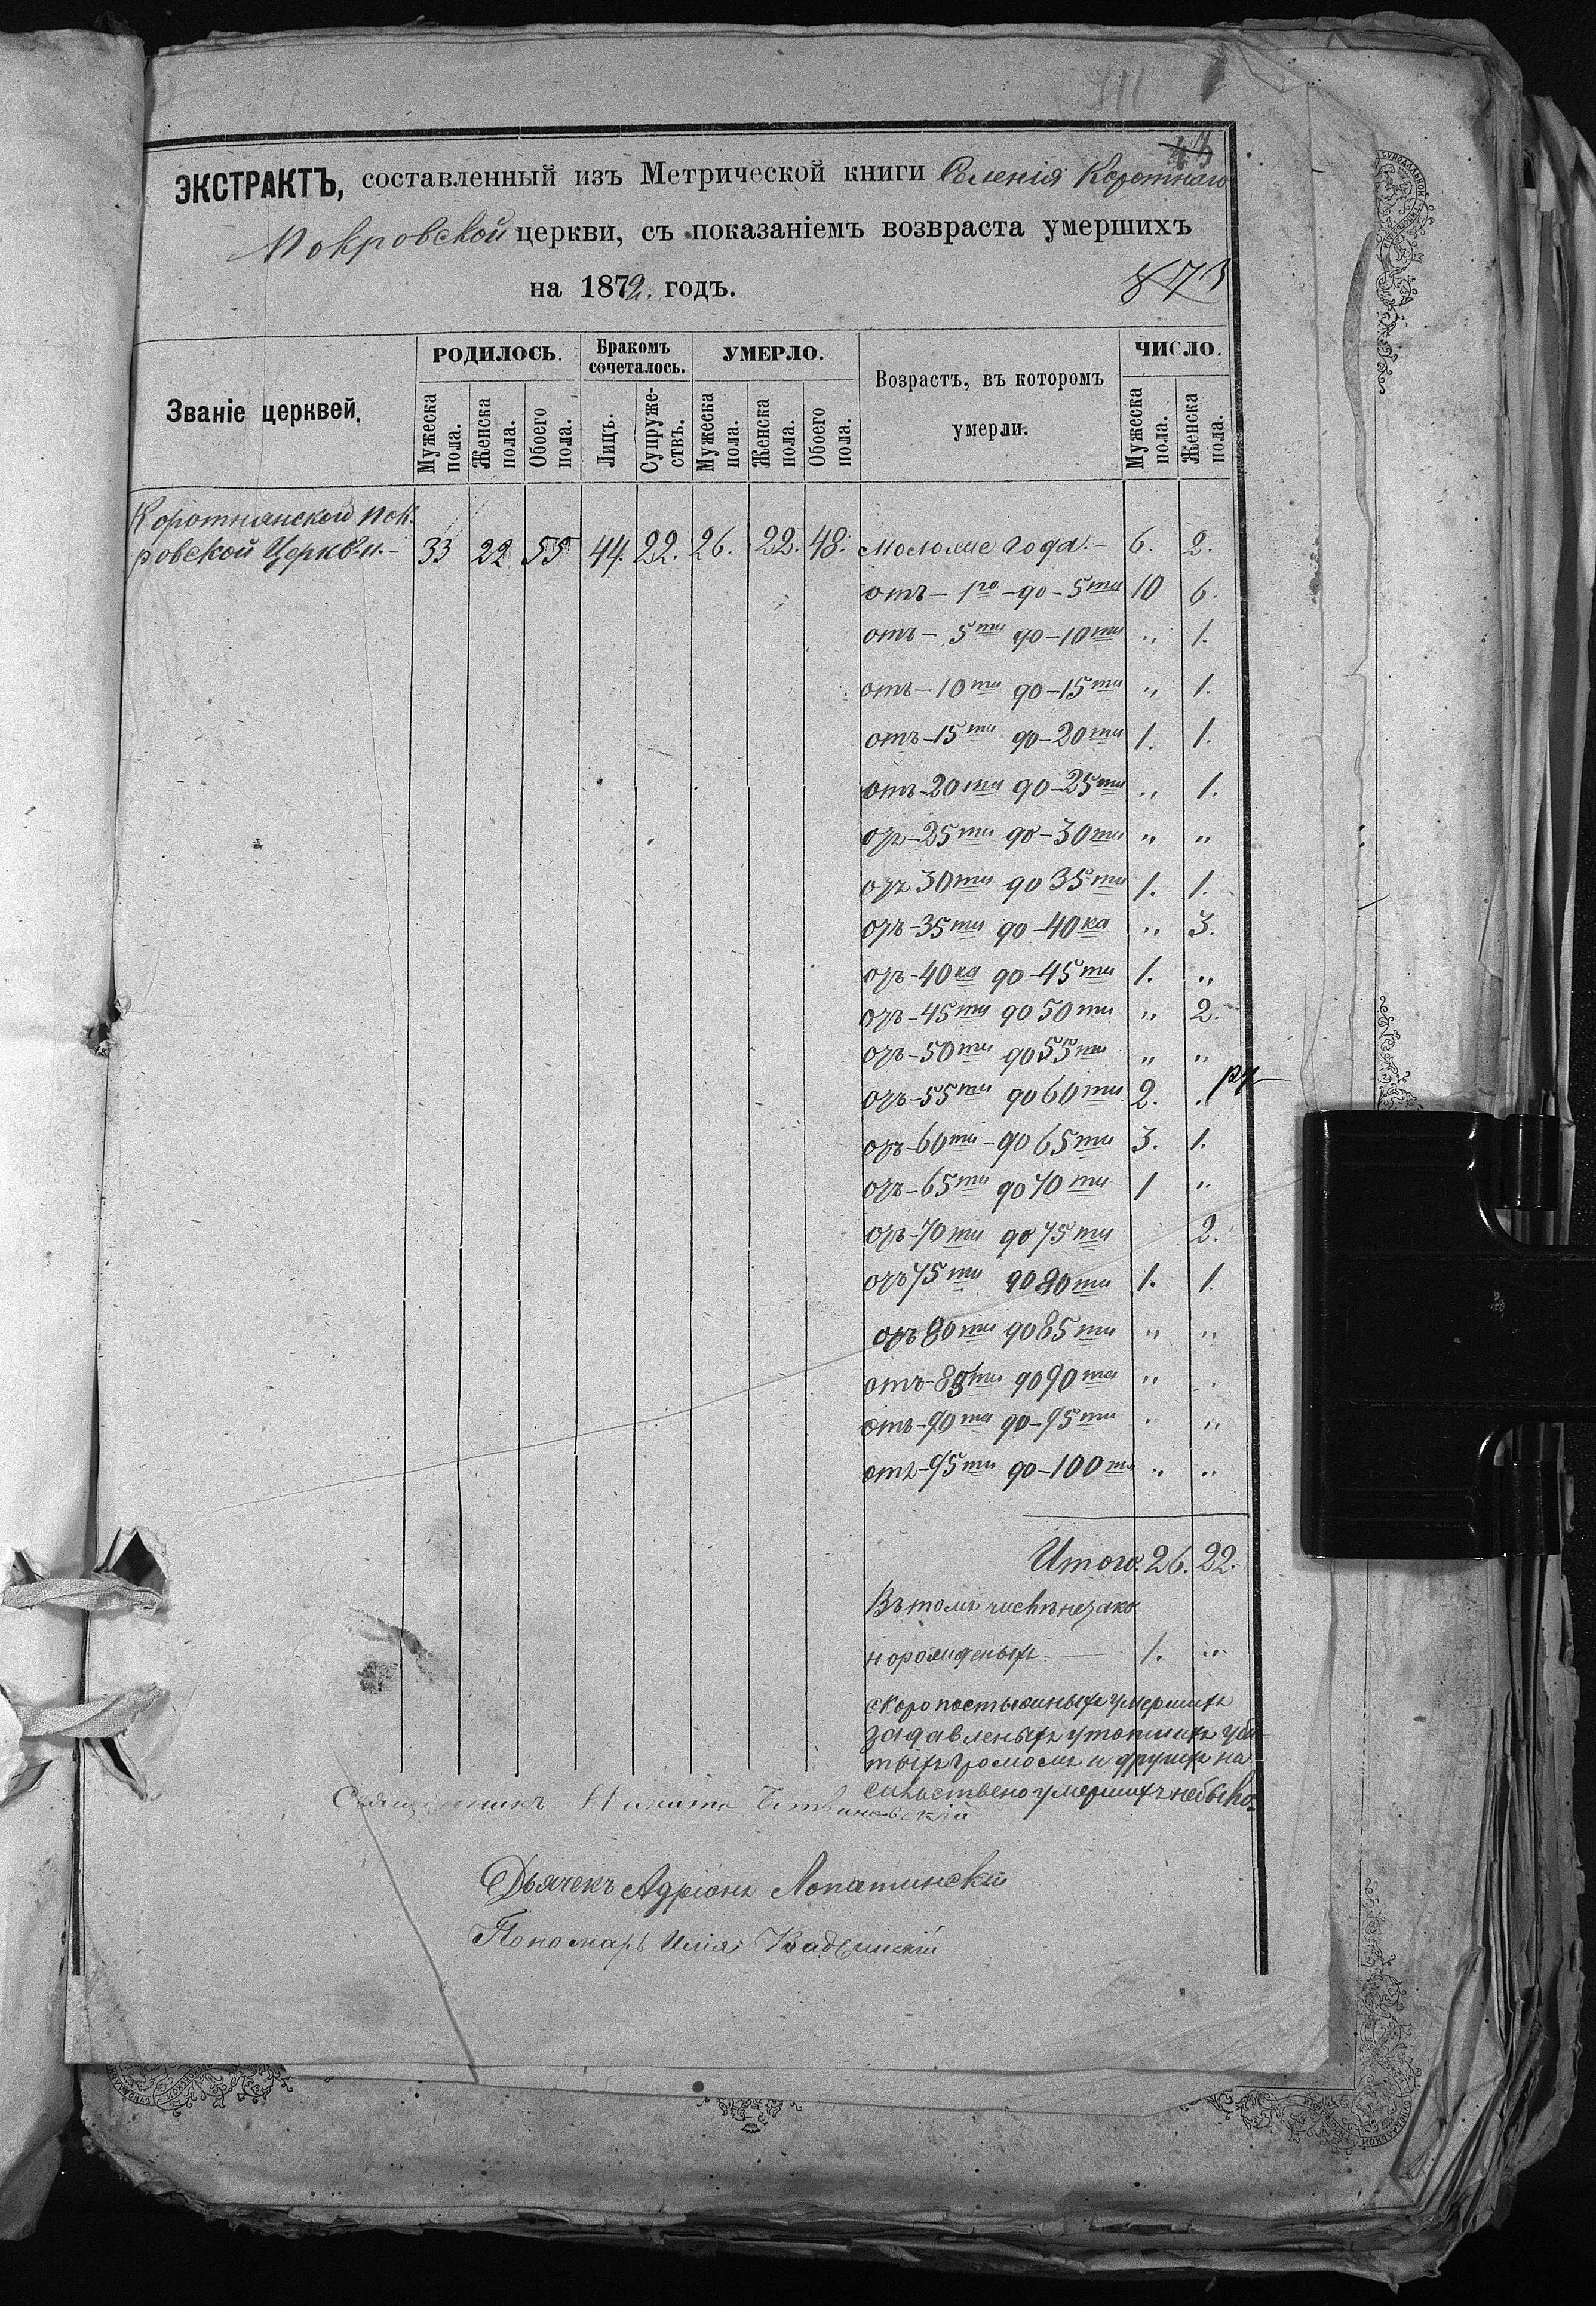 43
ЭКСТРАКТЪ, составленный изъ Метрической книги Селенія Коротнаго
Покровской церкви, съ показаніемъ возвраста умершихъ
на 1872. годъ.
873
Званіе церквей. РОДИЛОСЬ. Бракомъ сочеталось. УМЕРЛО. Возрастъ, въ которомъ умерли. ЧИСЛО.
Мужеска пола. Женска пола. Обоего пола. Лицъ. Супруже-ствъ. Мужеска пола. Женска пола. Обоего пола. Мужеска пола. Женска пола.
Коротнянской Пок-
ровской Церкви.- 33 22 55 44. 22. 26. 22. 48. моложе года.- 6. 2.
отъ- 1го -до- 5ти 10 6.
отъ- 5ти до-10ти " 1.
отъ-10ти до-15ти " 1.
отъ-15ти до-20ти 1. 1.
отъ-20ти до-25ти " 1.
отъ-25ти до-30ти " "
отъ 30ти до 35ти 1. 1.
отъ-35ти до-40ка " 3.
отъ-40ка до-45ти 1. "
отъ-45ти до 50ти " 2.
отъ-50ти до 55ти " "
отъ-55ти до 60ти 2. "
отъ-60ти-до 65ти 3. 1.
отъ-65ти до 70ти 1 "
отъ-70ти до 75ти 2.
отъ 75ти до 80ти 1. 1.
отъ 80ти до 85ти " "
отъ-85ти до 90та "
отъ-90та до-95ти "
отъ-95ти до-100та " "
Итого. 26. 22.
Въ томъ числѣ незако
норожденыхъ. — 1. "
скоропостыжныхъ умершихъ
задавленыхъ утопшихъ уби
тыхъ громомъ и другихъ на
сильствено умершихъ небыло.
Священникъ Никита
Дьячекъ Адріонъ Лопатинскій
Пономарь Илія